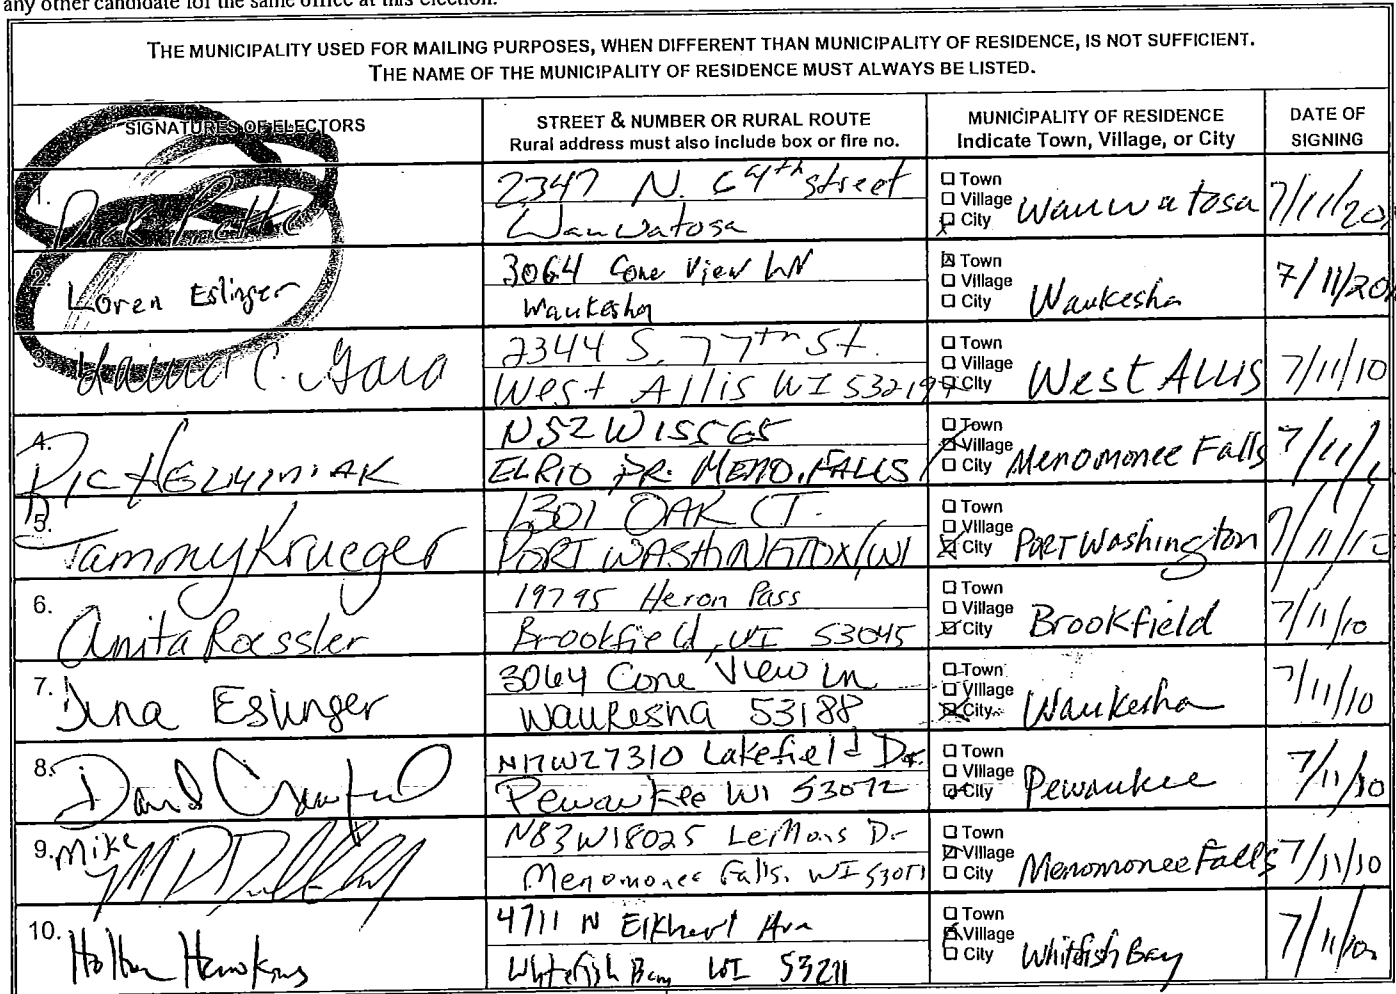 any other candidate for the same office at this election.
THE MUNICIPALITY USED FOR MAILING PURPOSES, WHEN DIFFERENT THAN MUNICIPALITY OF RESIDENCE, IS NOT SUFFICIENT.
THE NAME OF THE MUNICIPALITY OF RESIDENCE MUST ALWAYS BE LISTED.
SIGNATURES OF ELECTORS
STREET & NUMBER OR RURAL ROUTE
Rural address must also include box or fire no.
MUNICIPALITY OF RESIDENCE
Indicate Town, Village, or City
DATE OF
SIGNING
1.
2347 N. 64th street
Wauwatosa
Town
Village
City
Wauwatosa
7/11/20
2. Loren Eslinger
3064 Cone View LN
Waukesha
Town
Village
City
Waukesha
7/11/20
3. C.
2344 S. 77th St.
West Allis WI 53219
Town
Village
City
West Allis
7/11/10
4.
N52W15565
ELRIO DR. MENO. FALLS
Town
Village
City
Menomonee Falls
7/11/
5. Tammy Krueger
1301 OAK CT.
PORT WASHINGTON, WI
Town
Village
City
Port Washington
7/11/10
6. Anita Roessler
19795 Heron Pass
Brookfield, WI 53045
Town
Village
City
Brookfield
7/11/10
7. Eslinger
3064 Cone View Ln
Waukesha 53188
Town
Village
City
Waukesha
7/11/10
8. David Crawford
N17W27310 Lakefield Dr.
Pewaukee WI 53072
Town
Village
City
Pewaukee
7/11/10
9. Mike
N83W18025 LeMons Dr
Menomonee Falls, WI 53051
Town
Village
City
Menomonee Falls
7/11/10
10. Hawkins
4711 N Elkhart Ave
Whitefish Bay WI 53211
Town
Village
City
Whitfish Bay
7/11/10